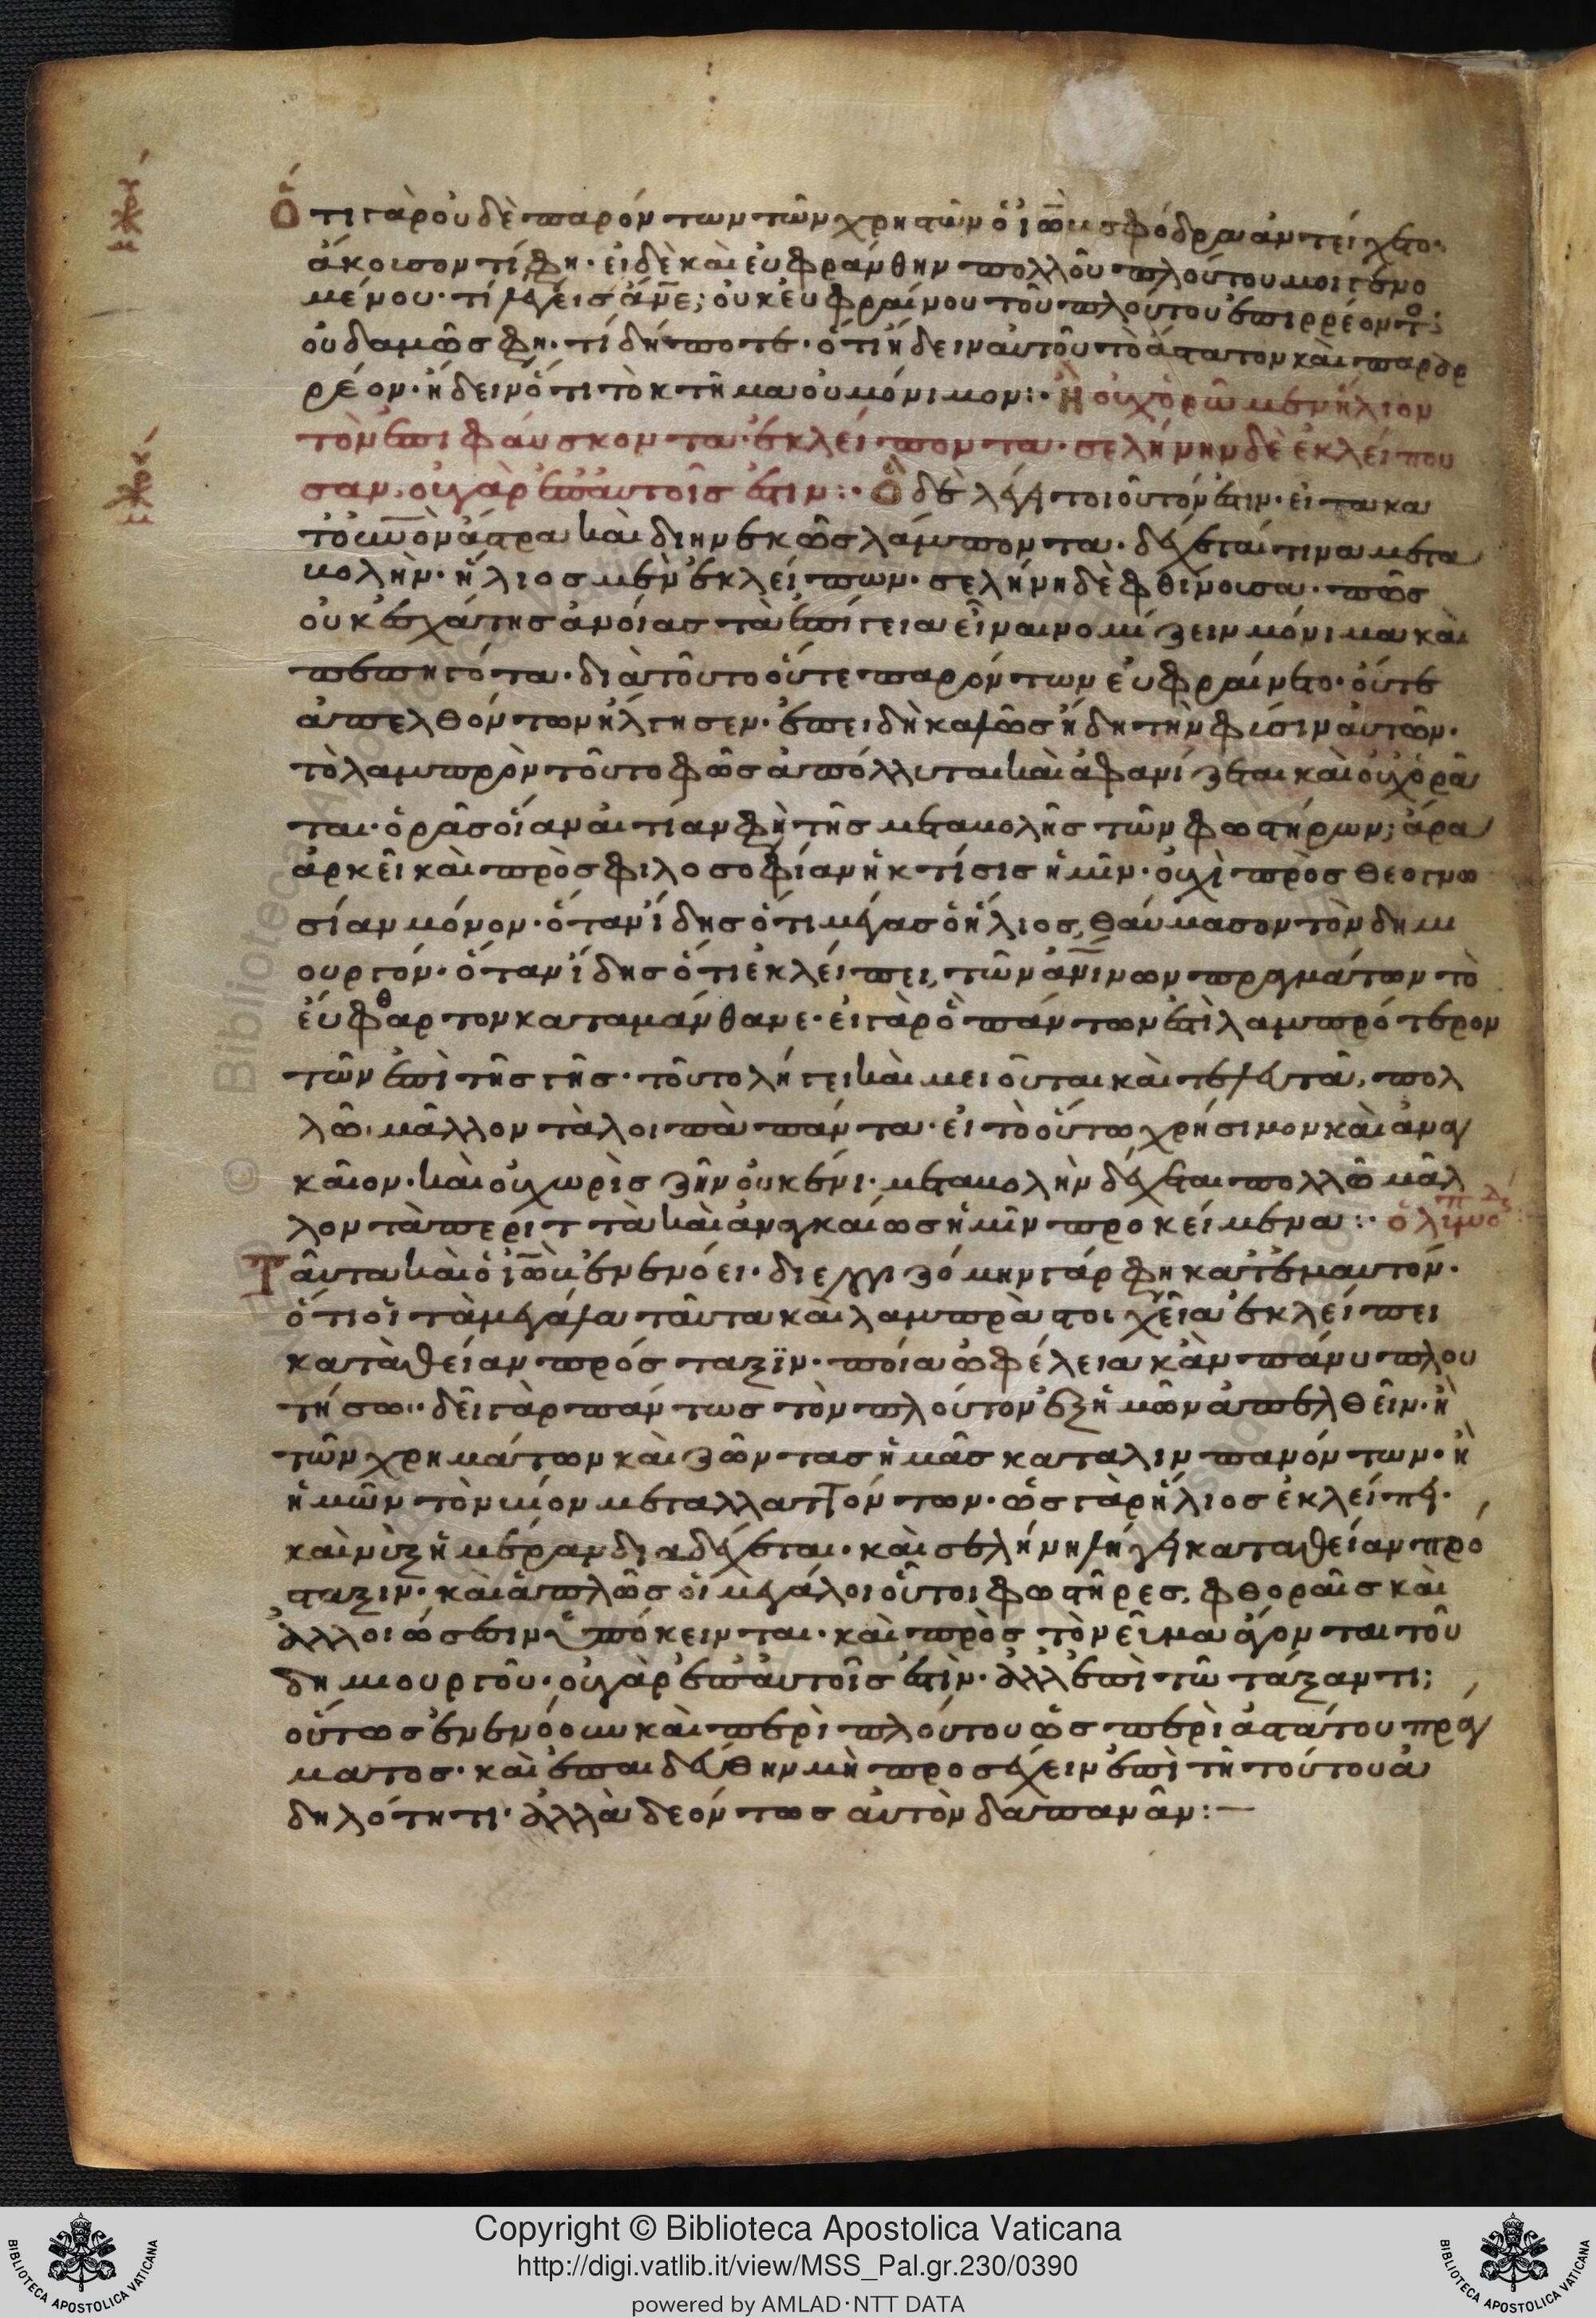 Ὅτι γὰρ οὐδὲ παρόντων τῶν χρημάτων ὁ ἰὼβ σφόδρα ἀντείχετο·
ἄκουσον τί φη· εἰ δὲ καὶ εὐφράνθην πολλοῦ πλούτου μοι γενο
μένου· τί λέγεις ἄνε; οὐκ εὐφραίνου τοῦ πλούτου ἐπιρρέοντος;
οὐδαμῶς φη· τί δήποτε· ὅτι ἤδειν αὐτοῦ τὸ ἄστατον καὶ παραρ
ρέον· ἤδειν ὅτι τὸ κτῆμα οὐ μόνιμον:· Ἢ οὐχ ὁρῶμεν ἥλιον
τὸν ἐπιφαύσκοντα· ἐκλείποντα· σελήνην δὲ ἐκλείπου
σαν. οὐ γὰρ ἐπ' αὐτοῖς ἐστιν:· Ὃ δὲ λέγει τοιοῦτόν ἐστιν· εἰ τὰ κα
τ' οὐνὸν ἄστρα καὶ διηνεκῶς λάμποντα· δέχεταί τινα μετα
βολὴν· ἥλιος μὲν ἐκλείπων· σελήνη δὲ φθίνουσα· πῶς
οὐκ ἐσχάτης ἀνοίας τὰ ἐπίγεια εἶναι νομίζειν μόνιμα καὶ
πεπηγότα· διὰ τοῦτο οὔτε παρόντων εὐφραίνετο· οὔτε
ἀπελθόντων ἤλγησεν· ἐπειδὴ καλῶς ἤδη τὴν φύσιν αὐτῶν·
τὸ λαμπρὸν τοῦτο φῶς ἀπόλλυται καὶ ἀφανίζεται καὶ οὐχ ὁρᾶ
ται· ὁρᾶς οἵαν αἰτίαν φὴ τῆς μεταβολῆς τῶν φωστήρων; ἄρα
ἀρκεῖ καὶ πρὸς φιλοσοφίαν ἡ κτίσις ἡμῖν· οὐχὶ πρὸς θεογνω
σίαν μόνον· ὅταν ἴδης ὅτι μέγας ὁ ἥλιος, θαύμασον τὸν δημι
ουργόν· ὅταν ἴδης ὅτι ἐκλείπει, τῶν ἀνίνων πραγμάτων τὸ
εὔφθαρτον καταμάνθανε· εἰ γὰρ ὃ πάντων ἐστὶ λαμπρότερον
τῶν ἐπὶ τῆς γῆς· τοῦτο λήγει καὶ μειοῦται καὶ τελευτᾶ, πολ
λῶ μᾶλλον τὰ λοιπὰ πάντα· εἰ τὸ οὕτω χρήσιμον καὶ ἀναγ
καῖον· καὶ οὗ χωρὶς ζῆν οὐκ ἔνι· μεταβολὴν δέχεται πολλῶ μᾶλ
λον τὰ περιττὰ καὶ ἀναγκαίως ἡμῖν προκείμενα:·
Ταῦτα καὶ ὁ ἰὼβ ἐνενόει· διελογιζόμην γάρ φη κατ' ἐμαυτόν·
ὅτι εἰ τὰ μεγάλα ταῦτα καὶ λαμπρὰ στοιχεῖα ἐκλείπει
κατὰ θείαν πρόσταξιν· ποία ὠφέλεια κἂν πάνυ πλου
τήσω· δεῖ γὰρ πάντως τὸν πλοῦτον ἐξ ἡμῶν ἀπελθεῖν· ἢ
τῶν χρημάτων καὶ ζῶντας ἡμᾶς καταλιμπανόντων· ἢ
ἡμῶν τὸν βίον μεταλλαττόντων· ὡς γὰρ ἥλιος ἐκλείπει·
καὶ νὺξ ἡμέραν διαδέχεται· καὶ σελήνη λήγει κατὰ θείαν πρό
σταξιν· καὶ ἁπλῶς οἱ μεγάλοι οὗτοι φωστῆρες, φθοραῖς καὶ
ἀλλοιώσεσιν ὑπόκεινται· καὶ πρὸς τὸ νεῦμα ἄγονται τοῦ
δημιουργοῦ· οὐ γὰρ ἐπ' αὐτοῖς ἐστὶν· ἀλλ' ἐπὶ τῶ τάξαντι;
οὕτως ἐνενόουν καὶ περὶ πλούτου ὡς περὶ ἀστάτου πράγ
ματος· καὶ ἐπαιδεύθην μὴ προσέχειν ἐπὶ τῆ τούτου ἀ
δηλότητι· ἀλλὰ δεόντως αὐτὸν δαπανᾶν:—